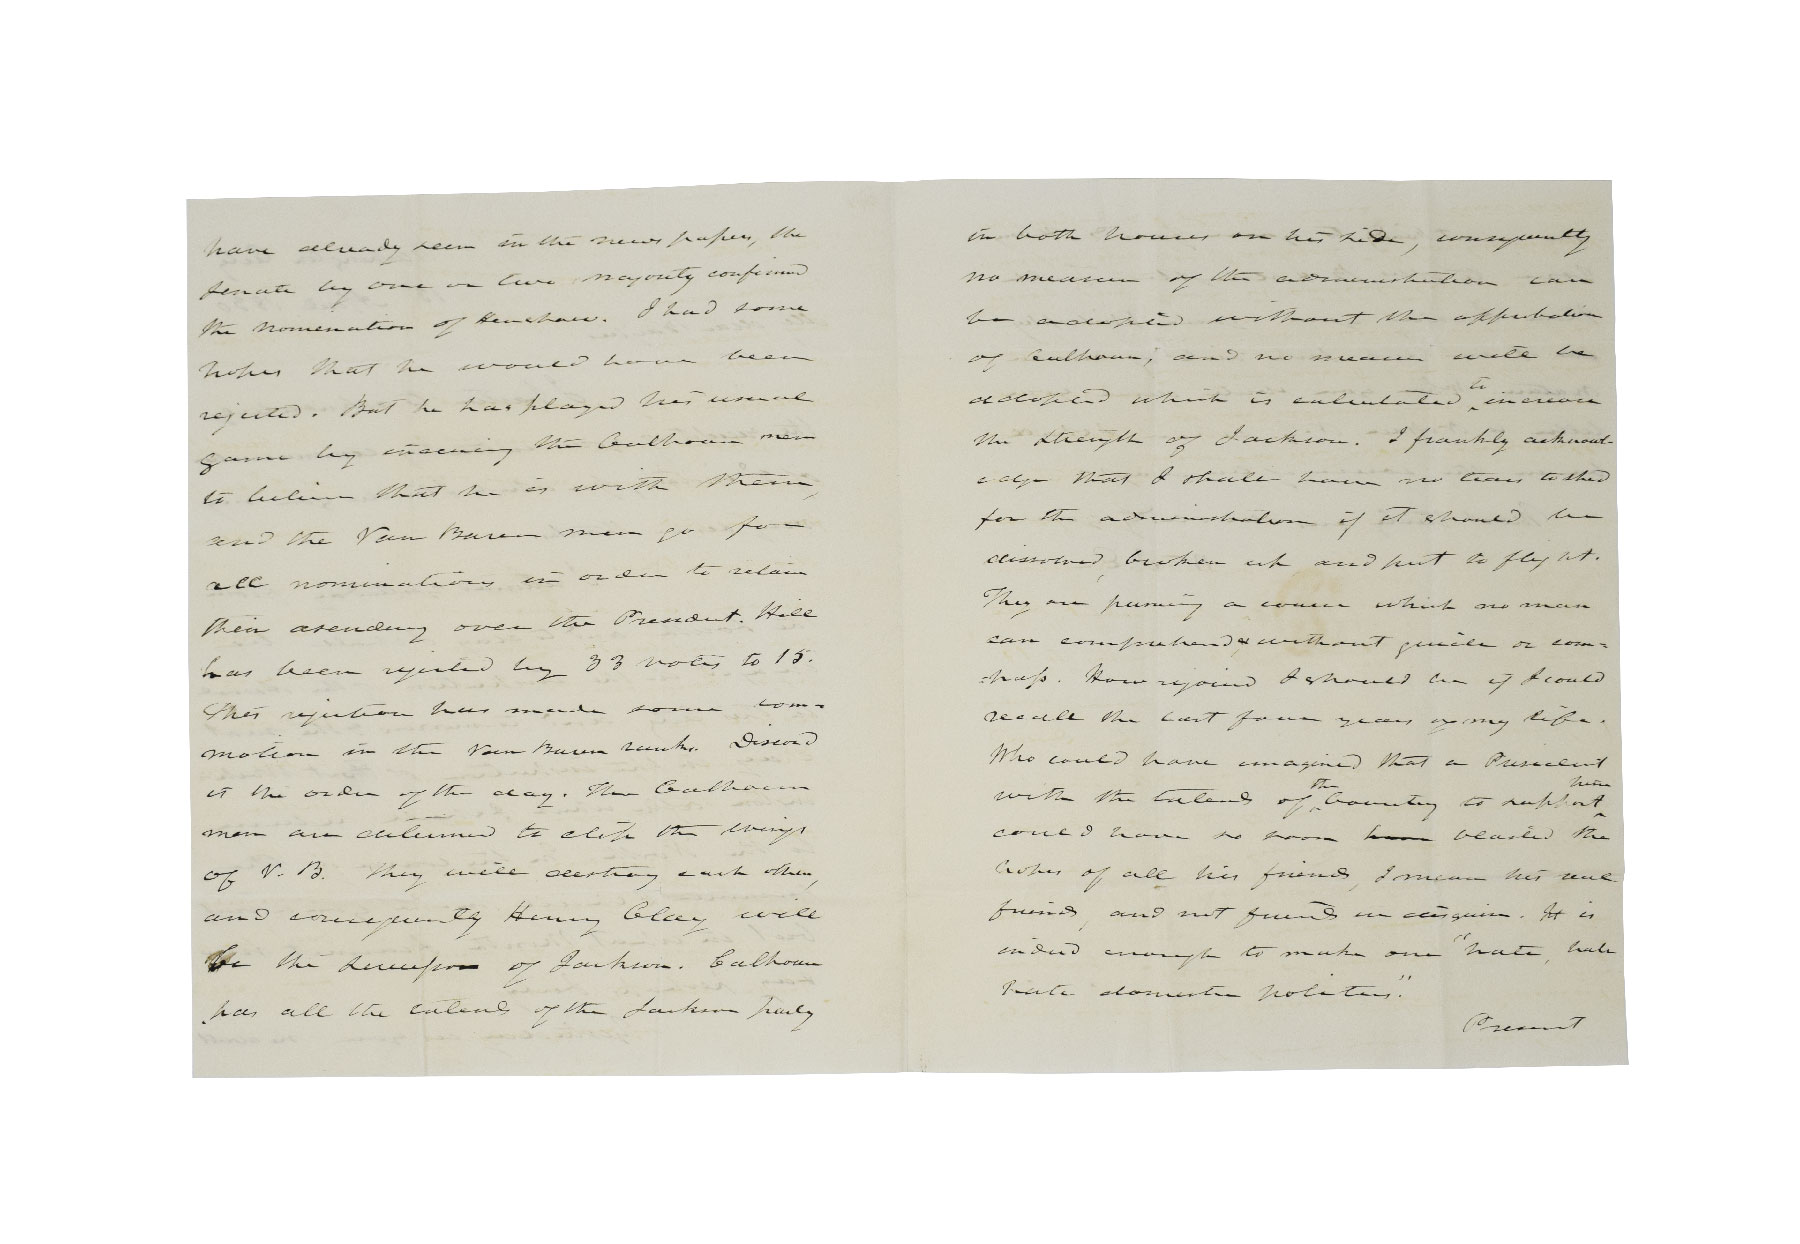 have already seen in the news papers, the
Senate by one or two majority confirmed
the nomination of Henshaw. I had some
hopes that he would have been
rejected. But he has played his usual
game by the Calhoun men
to believe that he is with them,
and the Van Buren men go for
all nominations in order to retain
their asendency over the President. Hill
has been rejected by 33 votes to 15.
This rejection has made some com-
motion in the Van Buren ranks. Discord
is the order of the day. The Calhoun
men are determined to clip the wings
of V. B. They will destroy each other,
and consequently Henry Clay will
be the successor of Jackson. Calhoun
has all the talents of the Jackson party
in both houses on his side, consequently
no measure of the administration can
be adopted without the approbation
of Calhoun; and no measure will be
adopted which is calculated to increase
the strength of Jackson. I frankly acknowl-
edge that I shall have no tears to shed
for the administration if it should be
dissolved, broken up and put to flight.
They are pursuing a course which no man
can comprehend & without guide or com=
=pass. How rejoiced I should be if I could
recall the last four years of my life.
Who could have imagined that a President
with the talents of the Country to support him
could have so soon been blasted the
hopes of all his friends, I mean his real
friends, and not friends in disguise. It is
indeed enough to make one "hate, hate
hate domestic politics."
Present